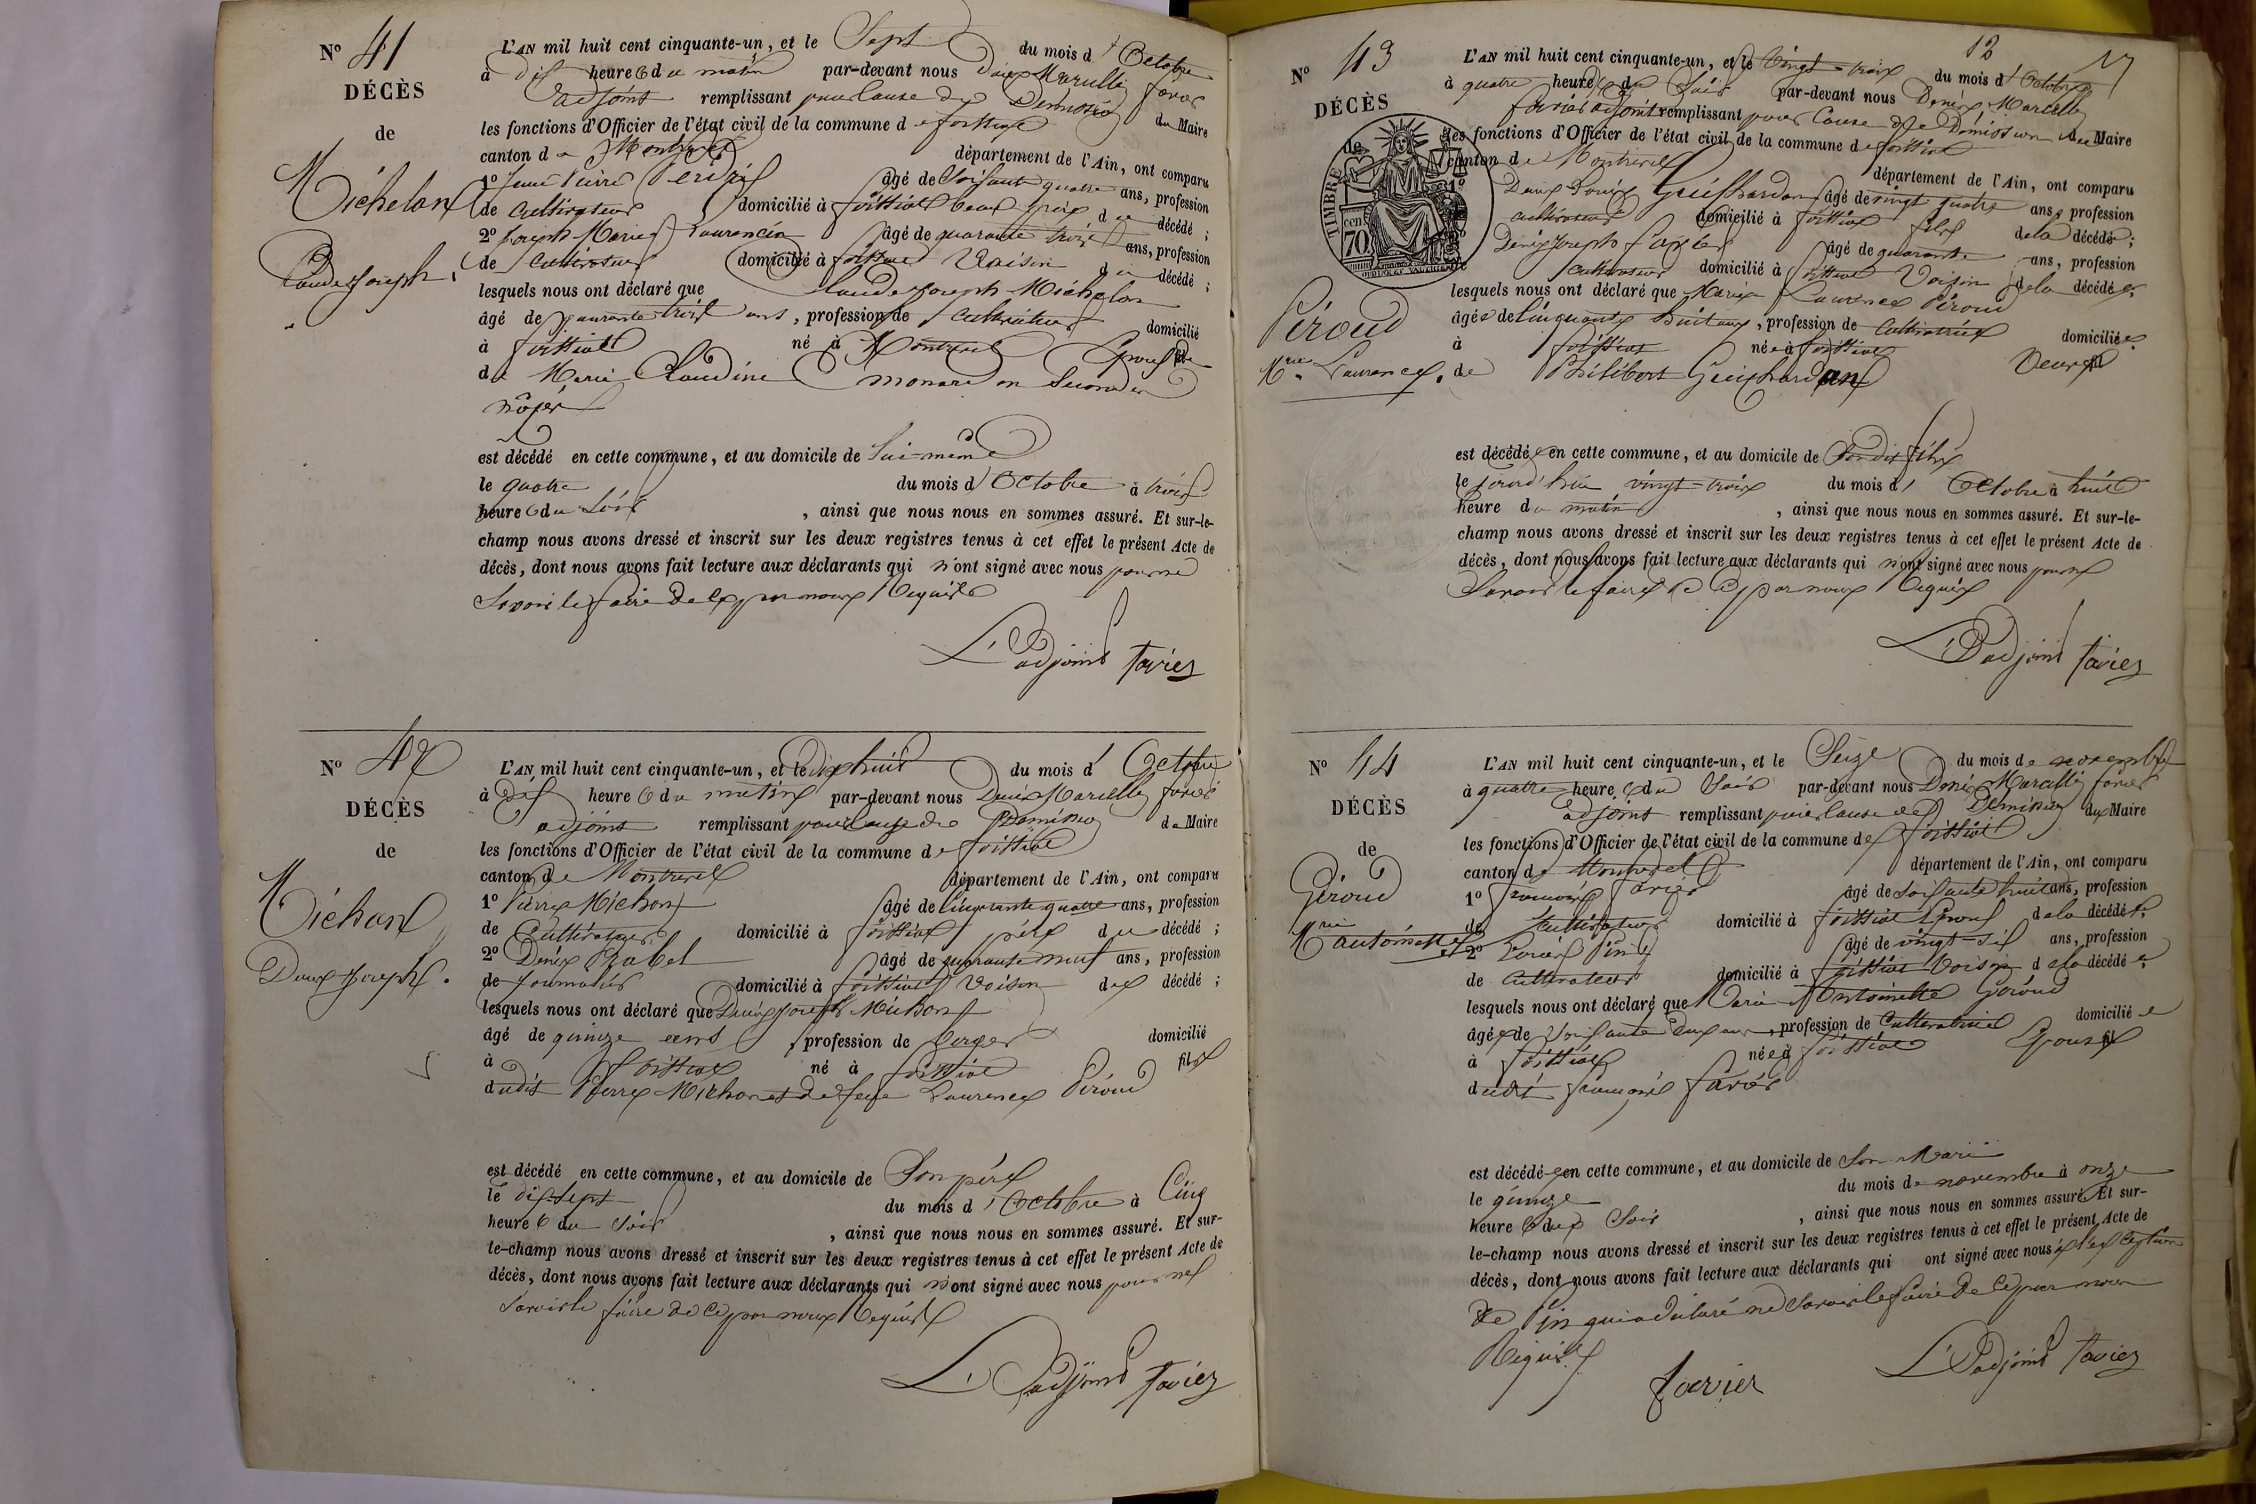 N° 41
DÉCÈS
de
Michelon
Claude Joseph
L'AN mil huit cent cinquante-un, et le Sept du mois d'Octobre
à dix heure du matin par-devant nous Denis Marcellin favier
adjoint remplissant pour Cause de Demission du Maire
les fonctions d'Officier de l'état civil de la commune de foissiat
canton de Montrevel département de l'Ain, ont comparu
1° Perdrix âgé de Soixante quatre ans, profession
de Cultivateur domicilié à foissiat beau père du décédé ;
2° Joseph Marie Laurencin âgé de quarante trois ans, profession
de Cultivateur domicilié à foissiat Voisin du décédé ;
lesquels nous ont déclaré que Claude Joseph Michelon
âgé de quarante trois ans, profession de Cultivateur domicilié
à foissiat né à Montrevel Epoux
de Marie Claudine monard en Seconde
nôces
est décédé en cette commune, et au domicile de lui-même
le quatre du mois d'Octobre à trois
heure du Soir, ainsi que nous nous en sommes assuré. Et sur-le-
champ nous avons dressé et inscrit sur les deux registres tenus à cet effet le présent Acte de
décès, dont nous avons fait lecture aux déclarants qui n'ont signé avec nous pour ne
Savoir le faire de Ce par nous Requis
L'adjoint favier
N° 42
DÉCÈS
de
Michon
Denis Joseph.
L'AN mil huit cent cinquante-un, et le dix huit du mois d'Octobre
à dix heure du matin par-devant nous Denis Marcellin favier
adjoint remplissant pour Cause de Demission du Maire
les fonctions d'Officier de l'état civil de la commune de foissiat
canton de Montrevel département de l'Ain, ont comparu
1° Pierre Michon âgé de Cinquante quatre ans, profession
de Cultivateur domicilié à foissiat père du décédé ;
2° Denis Rabel âgé de quarante neuf ans, profession
de Journalier domicilié à foissiat Voisin du décédé ;
lesquels nous ont déclaré que Denis Joseph Michon
âgé de quinze ans, profession de berger domicilié
à foissiat né à foissiat fils
dudit Pierre Michon et de feue Laurence Péroud
est décédé en cette commune, et au domicile de Son père
le dix-Sept du mois d'Octobre à Cinq
heure du Soir, ainsi que nous nous en sommes assuré. Et sur-
le-champ nous avons dressé et inscrit sur les deux registres tenus à cet effet le présent Acte de
décès, dont nous avons fait lecture aux déclarants qui n'ont signé avec nous pour ne
Savoir le faire de Ce par nous Requis
L'adjoint favier
12
N° 43
DÉCÈS
de
TIMBRE
70
Péroud
Mrie Laurence.
L'AN mil huit cent cinquante-un, et le Vingt-trois du mois d'Octobre
à quatre heure du Soir par-devant nous Denis Marcellin
favier adjoint remplissant pour Cause de Démission du Maire
les fonctions d'Officier de l'état civil de la commune de foissiat
canton de Montrevel département de l'Ain, ont comparu
1° Denis Louis Guichardan âgé de vingt quatre ans, profession
cultivateur domicilié à foissiat fils de la décédé ;
Denis Joseph âgé de quarante ans, profession
Cultivateur domicilié à foissiat Voisin de la décédée
lesquels nous ont déclaré que Marie Laurence Péroud
âgée de Cinquante huit ans, profession de Cultivatrice domiciliée
à foissiat née à foissiat Veuve
de Philibert Guichardan
est décédée en cette commune, et au domicile de Son dit fils
le jourd'hui vingt-trois du mois d'Octobre à huit
heure du matin, ainsi que nous nous en sommes assuré. Et sur-le-
champ nous avons dressé et inscrit sur les deux registres tenus à cet effet le présent Acte de
décès, dont nous avons fait lecture aux déclarants qui n'ont signé avec nous pour ne
Savoir le faire de Ce par nous Requis
L'adjoint favier
N° 44
DÉCÈS
de
Géroud
Mrie antoinette
L'AN mil huit cent cinquante-un, et le Seize du mois de novembre
à quatre heure du Soir par-devant nous Denis Marcellin favier
adjoint remplissant pour Cause de Démission du Maire
les fonctions d'Officier de l'état civil de la commune de foissiat
canton de Montrevel département de l'Ain, ont comparu
1° favier âgé de Soixante huit ans, profession
de Cultivateur domicilié à foissiat Epoux de la décédée
2° Louis Pin âgé de vingt-six ans, profession
de Cultivateur domicilié à foissiat Voisin de la décédée ;
lesquels nous ont déclaré que Marie Antoinette Géroud
âgée de Soixante Deux ans, profession de Cultivatrice domiciliée
à foissiat née à foissiat Epouse
dudit favier
est décédée en cette commune, et au domicile de Son Mari
le quinze du mois de novembre à onze
heure du Soir, ainsi que nous nous en sommes assuré. Et sur-
le-champ nous avons dressé et inscrit sur les deux registres tenus à cet effet le présent Acte de
décès, dont nous avons fait lecture aux déclarants qui ont signé avec nous à l'exception
de Pin qui a déclaré ne Savoir le faire de Ce par nous
Requis
favier L'adjoint favier